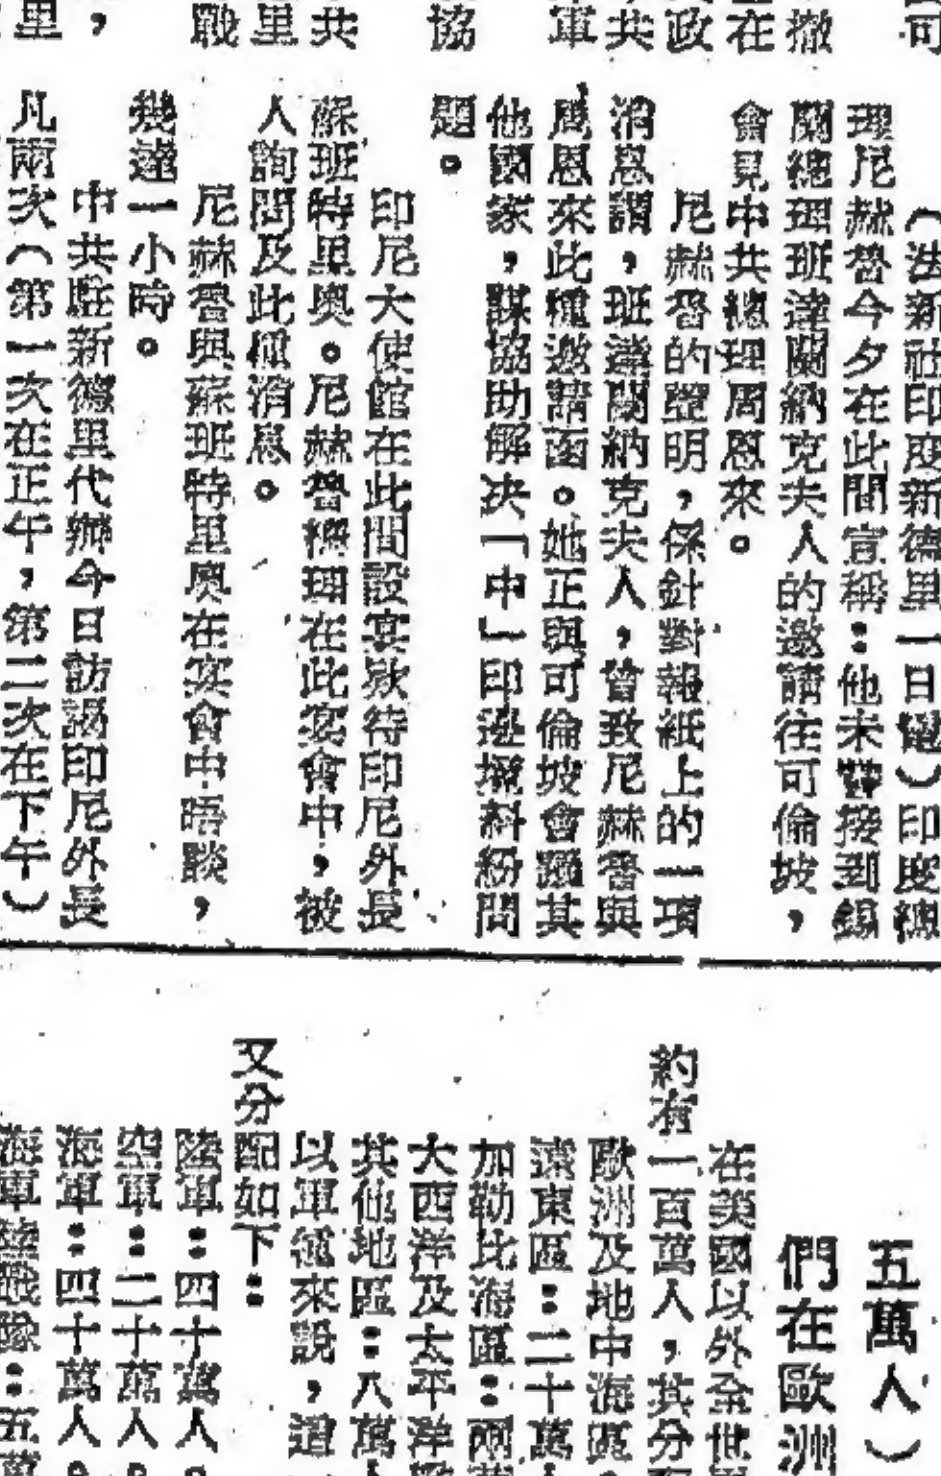 可
撤
在
政
共
軍
協
共
里
戰
，
里
（法新社印度新德里一日電）印度總
理尼赫魯今夕在此間宣稱：他未曾接到錫
蘭總理班達蘭納克夫人的邀請往可倫坡，
會見中共總理周恩來。
尼赫魯的聲明，係針對報紙上的一項
消息謂，班達蘭納克夫人，曾致尼赫魯與
周恩來此種邀請函。她正與可倫坡會議其
他國家，謀協助解决「中」印邊界糾紛問
題。
印尼大使館在此間設宴欵待印尼外長
蘇班特里奧。尼赫魯總理在此宴會中，被
人詢問及此種消息。
尼赫魯與蘇班特里奧在宴會中晤談，
幾達一小時。
中共駐新德里代辦今日訪謁印尼外長
凡兩次（第一次在正午，第二次在下午）
五萬人）
們在歐洲
在美國以外全世
約有一百萬人，其分
歐洲及地中海區
遠東區：二十萬
加勒比海區：兩萬
大西洋及太平洋
其他地區：八萬
以軍種來說，這
又分配如下：
陸軍：四十萬人。
空軍：二十萬人。
海軍：四十萬人。
海軍陸戰隊：五萬